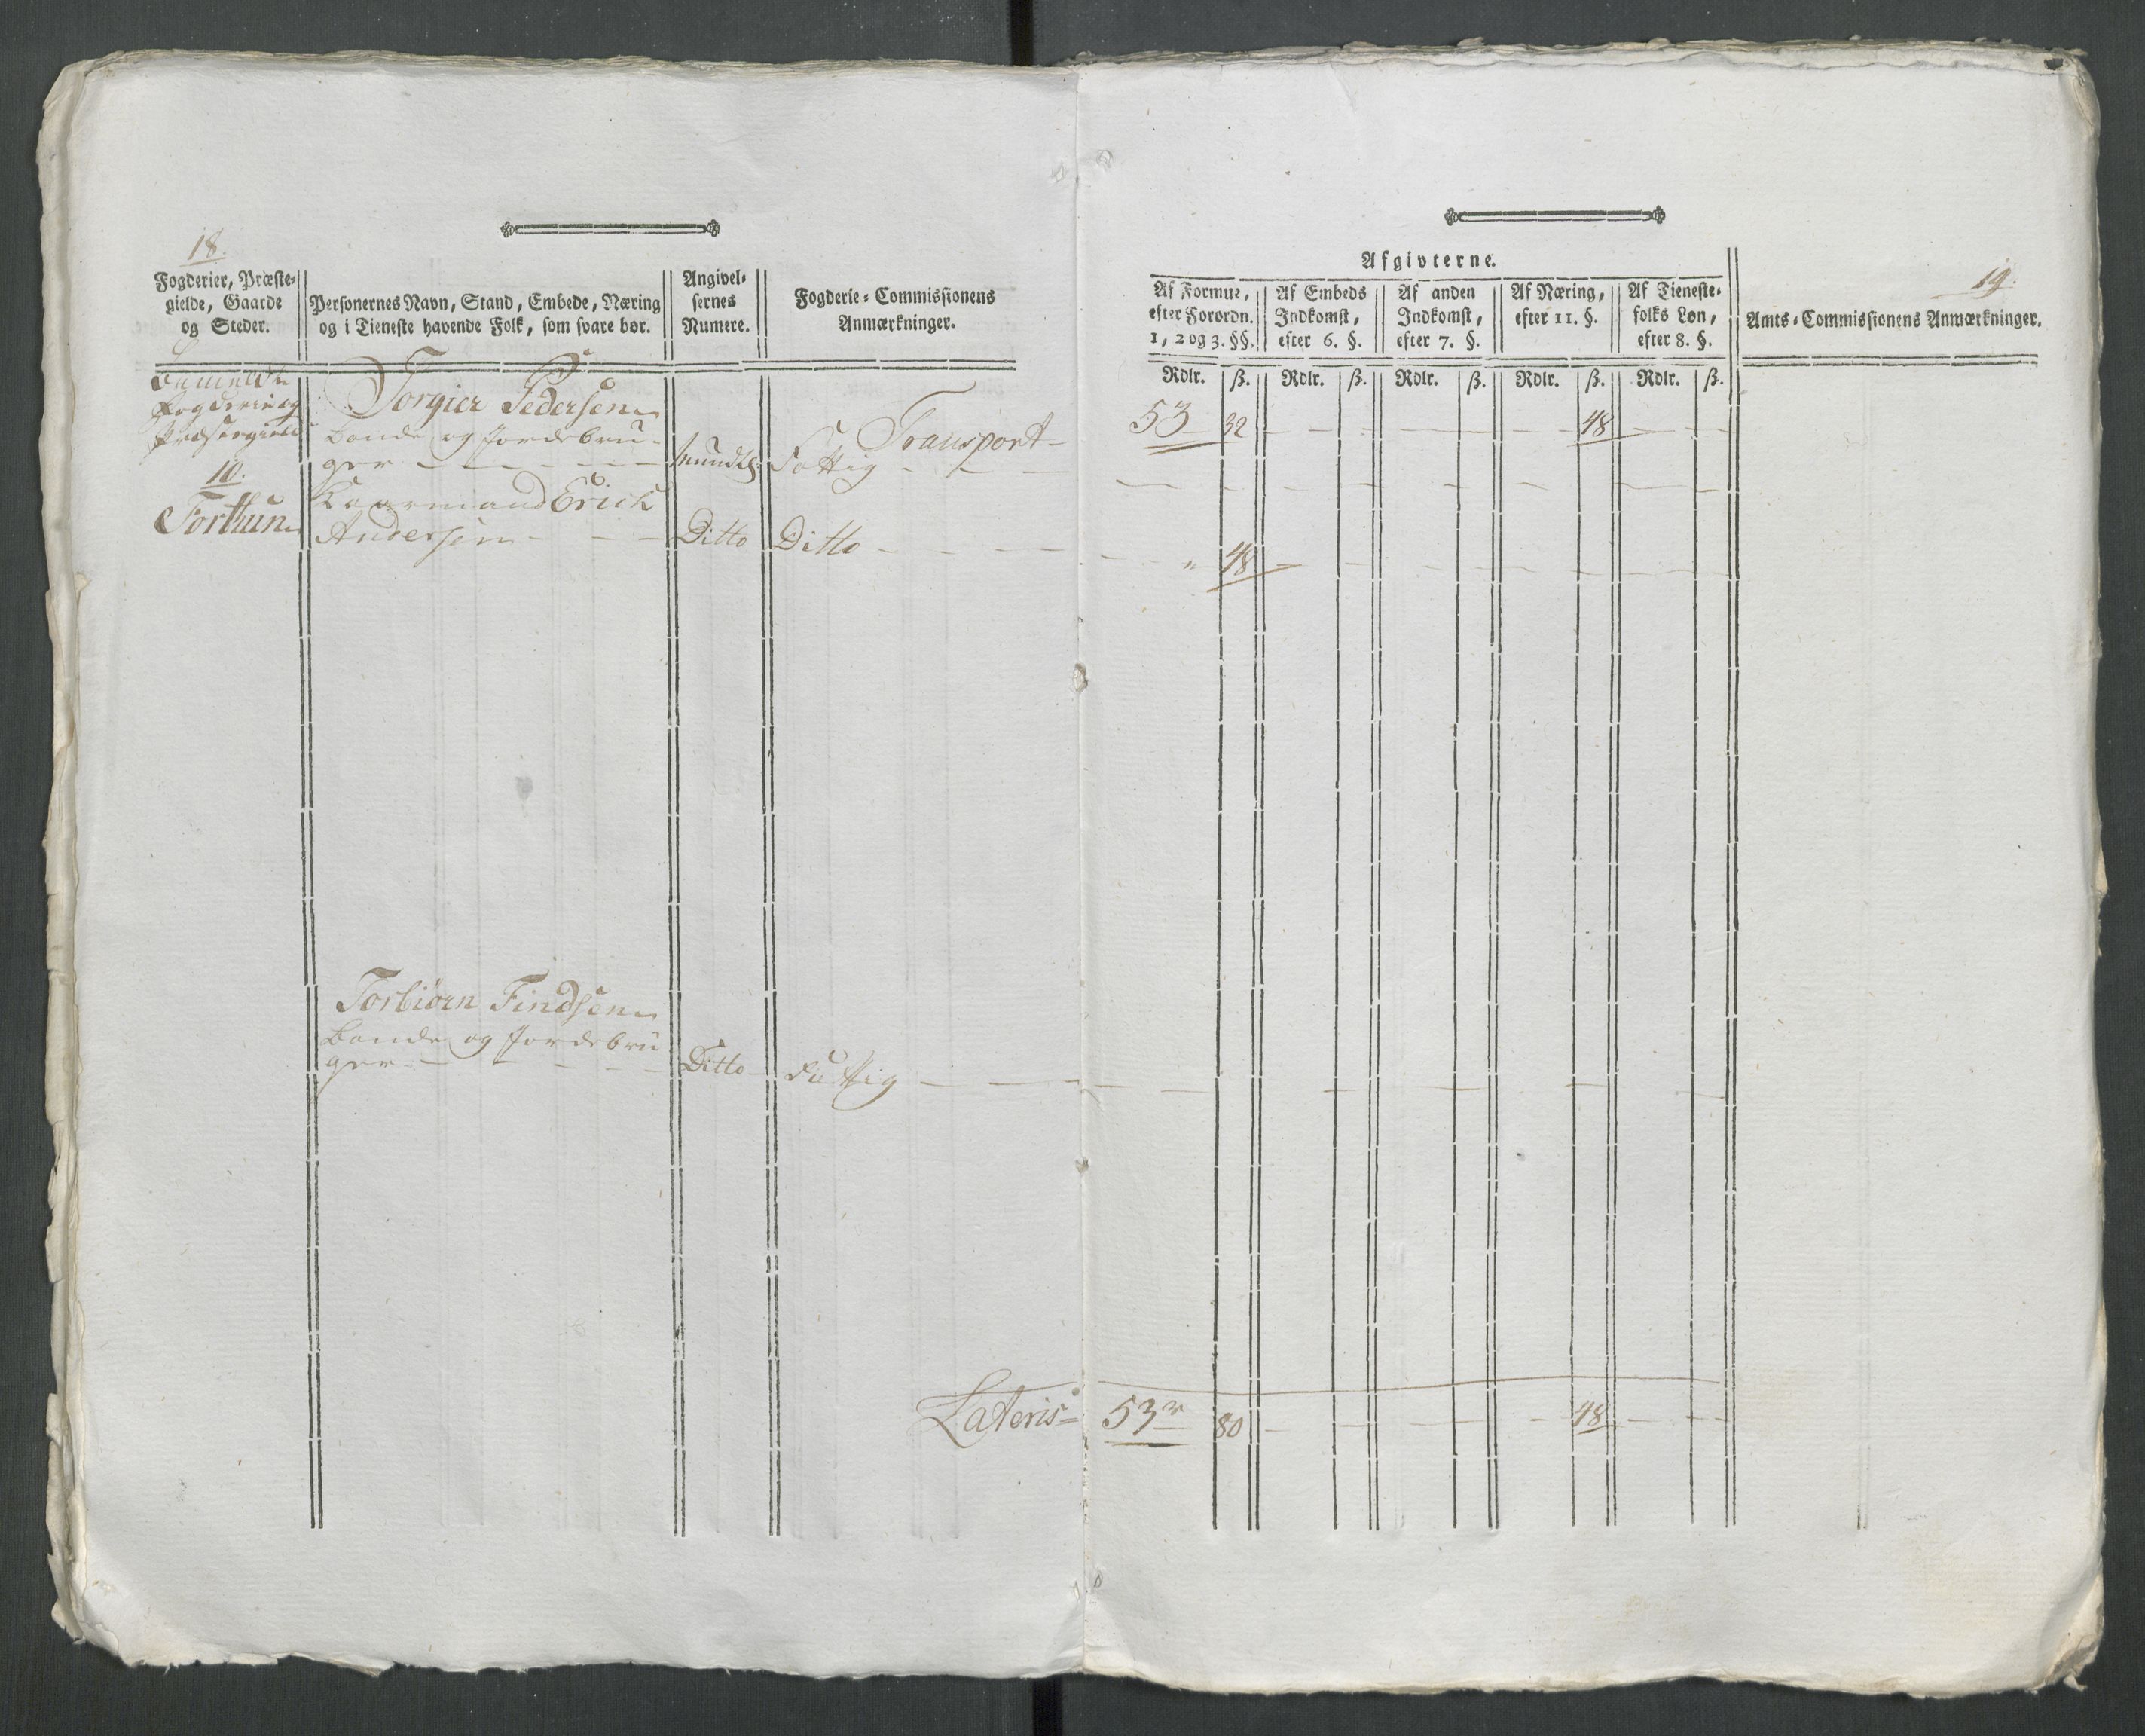 18.
Fogderier, Præste-
gielde, Gaarde
og Steder.
Personernes Navn, Stand, Embede, Næring
og i Tieneste havende Folk, som svare bør.
Angivel-
sernes
Numere.
Fogderie-Commissionens
Anmærkninger.
bemeldte
Fogderie og
Præstegield
10.
Torthun
Torgier Pedersen
bonde og Jordebru-
ger
Mundtl:
Fattig
Transport
Kaarmand Erick
Andersen
Ditto
Ditto
Torbiørn Findsen
bonde og Jordebru
ger
Ditto
Fattig
Lateris
Afgivterne.
19.
Af Formue,
efter Forordn.
1, 2 og 3. §§.
Af Embeds
Indkomst,
efter 6. §.
Af anden
Indkomst,
efter 7. §.
Af Næring,
efter 11. §.
Af Tieneste-
folks Løn,
efter 8. §.
Amts-Commissionens Anmærkninger.
Rdlr. ß. Rdlr. ß. Rdlr. ß. Rdlr. ß. Rdlr. ß.
53 32 48
" 48
53 80 48